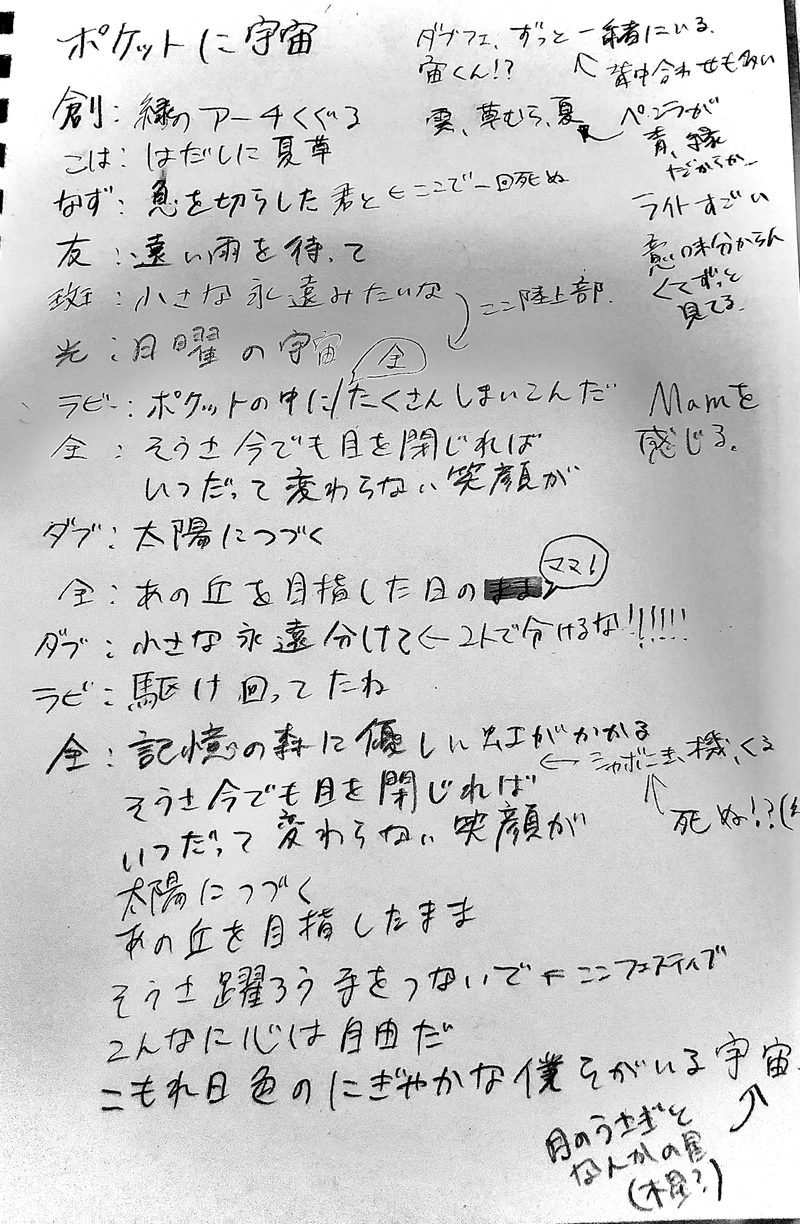 ポケットに宇宙
ダブフェ、ずっと一緒にいる。
宙くん!?
↖背中合わせも多い
創:緑のアーチくぐる
雲、草むら、夏
ペンラが
青、緑
だからか
こは:はだしに夏草
なず:息を切らした君と←ここで一回死ぬ
ライトすごい
友:遠い雨を待って
意味分からん
くてずっと
見てる。
斑:小さな永遠みたいな
ここ陸上部。
光:日曜の宇宙
全
ラビ:ポケットの中に/たくさんしまいこんだ
Mamを
感じる。
全:そうさ今でも目を閉じれば
いつだって変わらない笑顔が
ダブ:太陽につづく
全:あの丘を目指した日の
ママ!
ダブ:小さな永遠分けて←2人で分けるな!!!!!
ラビ:駆け回ってたね
全:記憶の森に優しい虹がかかる
←シャボン玉、機、くる
↑
死ぬ!?(
そうさ今でも目を閉じれば
いつだって変わらない笑顔が
太陽につづく
あの丘を目指したまま
そうさ躍ろう手をつないで←ここフェスティブ
こんなに心は自由だ
こもれ日色のにぎやかな僕そがいる宇宙。
月のうさぎと
なんかの星
(木星?)